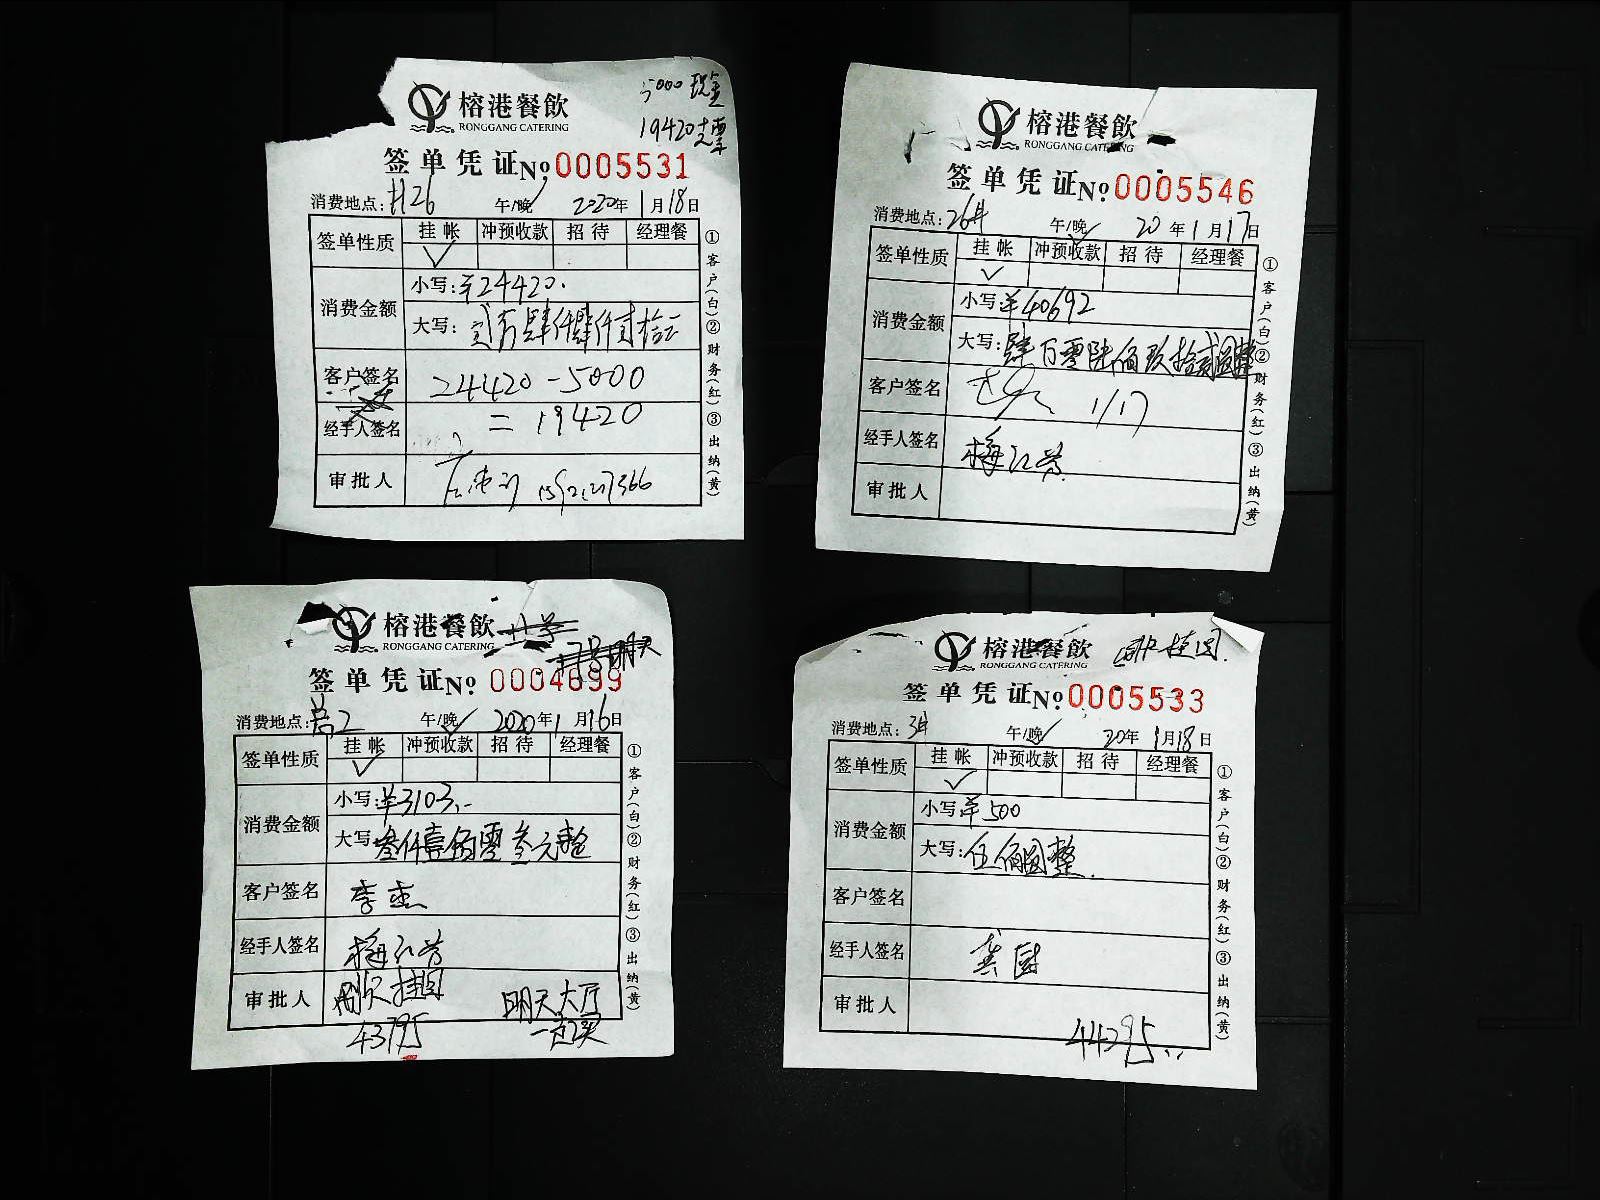 5000 现金
19420 支票
榕港餐飲
RONGGANG CATERING
签单凭证 No. 0005531
消费地点: H26 午/晚 2020年 1月18日
签单性质 挂帐 冲预收款 招待 经理餐
✓
消费金额 小写: ¥24420.
大写: 贰万肆仟肆佰贰拾元
客户签名 24420-5000
经手人签名 =19420
审批人
①客户(白)②财务(红)③出纳(黄)
榕港餐飲
RONGGANG CATERING
签单凭证 No. 0005546
消费地点: 26# 午/晚 20年1月17日
签单性质 挂帐 冲预收款 招待 经理餐
✓
消费金额 小写: ¥40692
大写: 肆万零陆佰玖拾贰圆整
客户签名 1/17
经手人签名 梅红芳
审批人
①客户(白)②财务(红)③出纳(黄)
榕港餐飲
RONGGANG CATERING
签单凭证 No. 0004699
消费地点: 午/晚 2020年1月16日
签单性质 挂帐 冲预收款 招待 经理餐
✓
消费金额 小写: ¥3103.-
大写: 叁仟壹佰零叁元整
客户签名 李杰
经手人签名 梅红芳
审批人 明天大厅
43795 一起买
①客户(白)②财务(红)③出纳(黄)
榕港餐飲
RONGGANG CATERING
签单凭证 No. 0005533
消费地点: 3# 午/晚 20年1月18日
签单性质 挂帐 冲预收款 招待 经理餐
✓
消费金额 小写 ¥500
大写: 伍佰圆整.
客户签名
经手人签名 龚厨
审批人
44295
①客户(白)②财务(红)③出纳(黄)